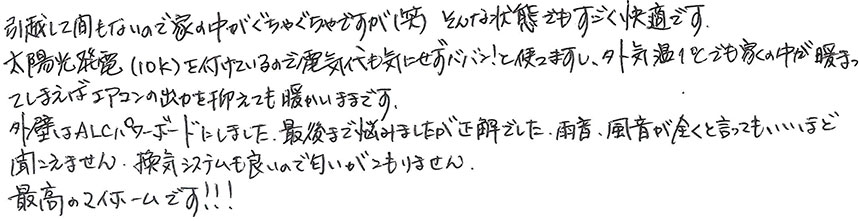 引越して間もないので家の中がぐちゃぐちゃですが(笑) そんな状態でもすごく快適です.
太陽光発電(10K)を付けているので電気代も気にせずバンバン!と使ってますし、外気温1℃でも家の中が暖まっ
てしまえばエアコンの出力を抑えても暖かいままです.
外壁はALCパワーボードにしました.最後まで悩みましたが正解でした.雨音、風音が全くと言ってもいいほど
聞こえません.換気システムも良いので匂いがこもりません.
最高のマイホームです!!!